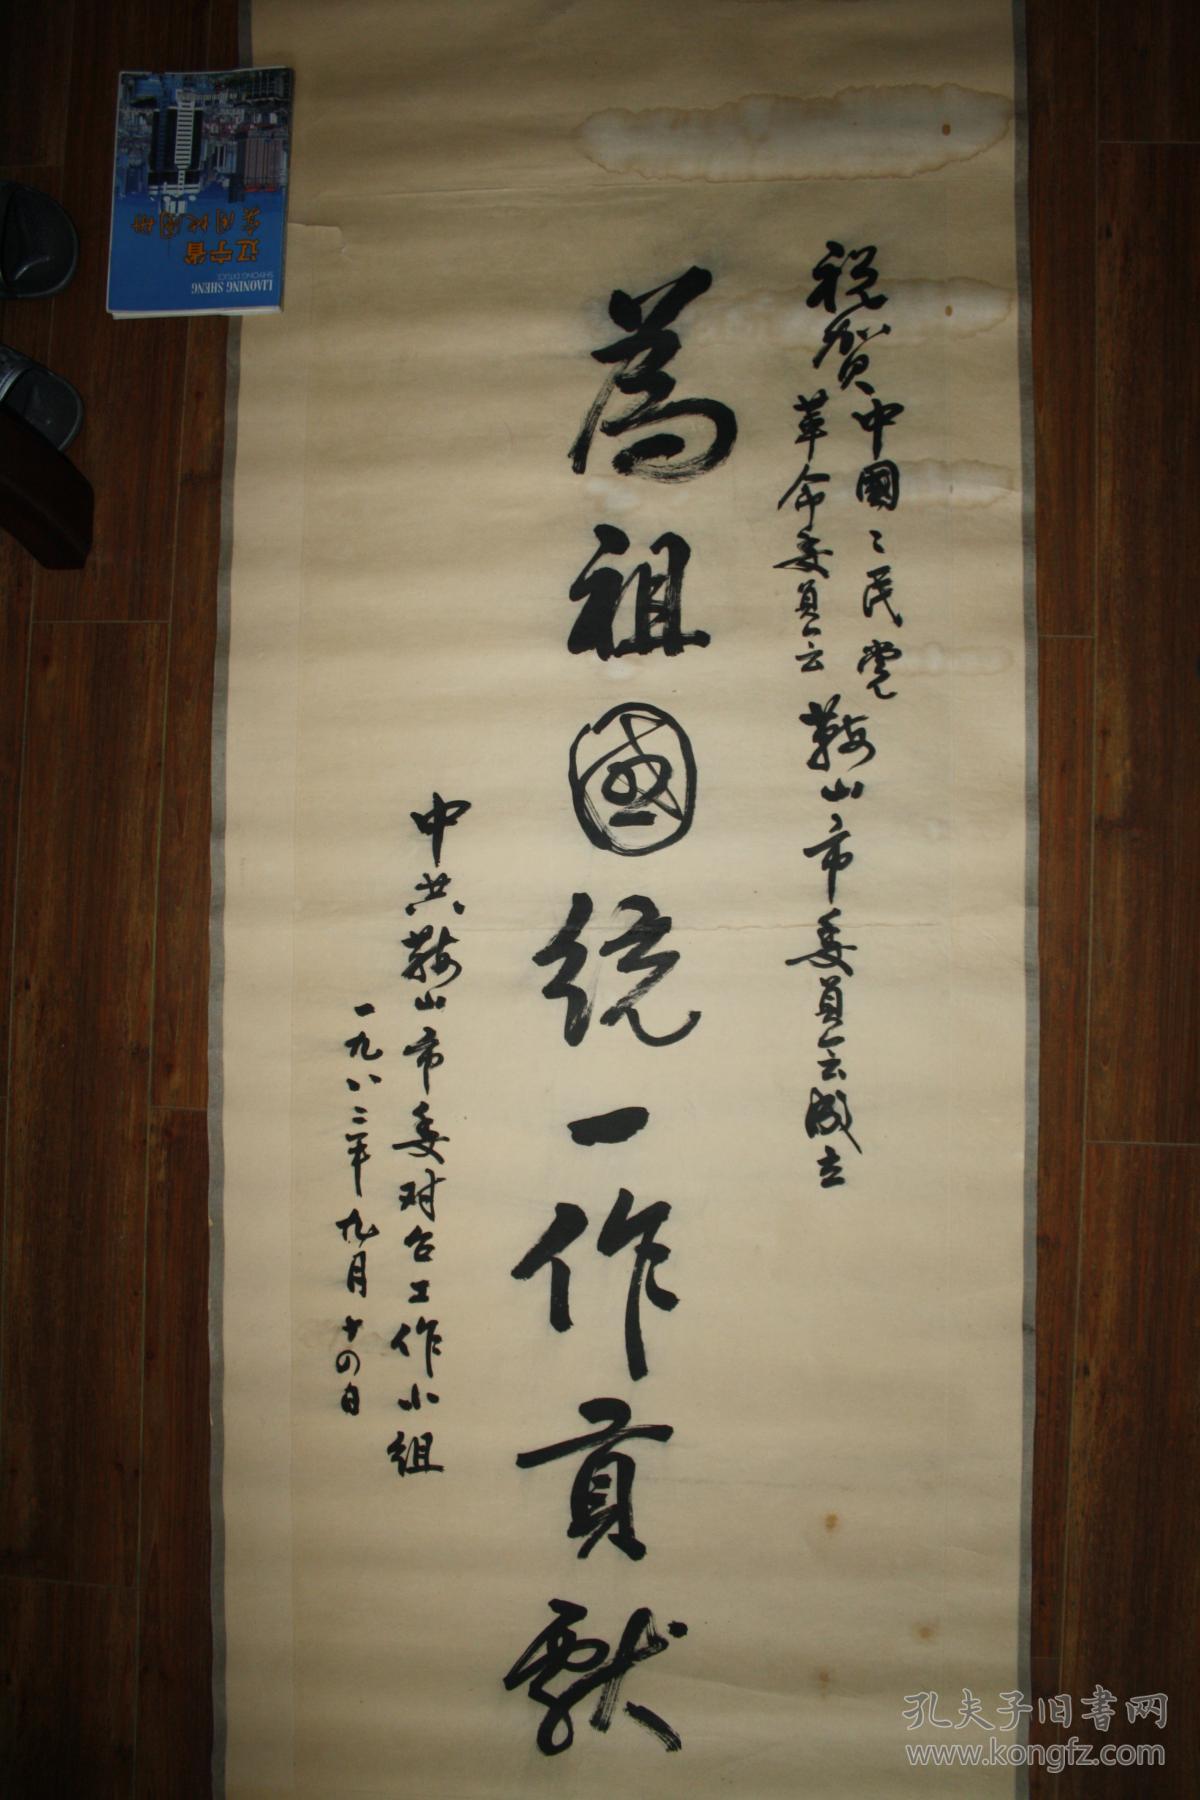 祝贺中國〻民党
革命委員会
鞍山市委員会成立
為祖國統一作貢獻
中共鞍山市委对台工作小组
一九八二年九月十四日
辽宁省
实用地图册
LIAONING SHENG
SHIYONG DITUCE
孔夫子旧书网
www.kongfz.com